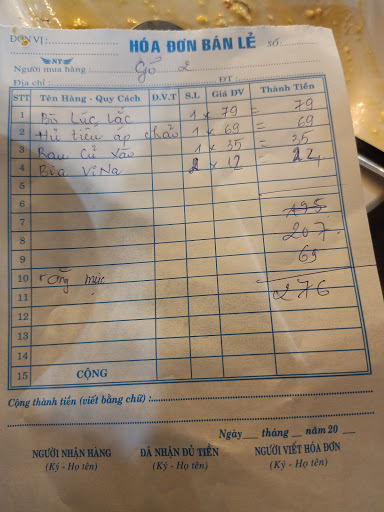 ĐƠN VỊ :
HÓA ĐƠN BÁN LẺ SỐ:
NY
Người mua hàng Gỗ 2
Địa chỉ : ĐT :
STT Tên Hàng - Quy Cách Đ.V.T S.L Giá ĐV Thành Tiền
1 Bò Lúc Lắc 1 x 79 = 79
2 Hủ tiếu áp chảo 1 x 69 = 69
3 Rau Củ Xào 1 x 35 = 35
4 Bia ViNa 2 x 12
5
6 195
7 207
8
9 69
10 răng mực
11 276
12
13
14
15 CỘNG
Cộng thành tiền (viết bằng chữ) :
Ngày tháng năm 20
NGƯỜI NHẬN HÀNG ĐÃ NHẬN ĐỦ TIỀN NGƯỜI VIẾT HÓA ĐƠN
(Ký - Họ tên) (Ký - Họ tên) (Ký - Họ tên)